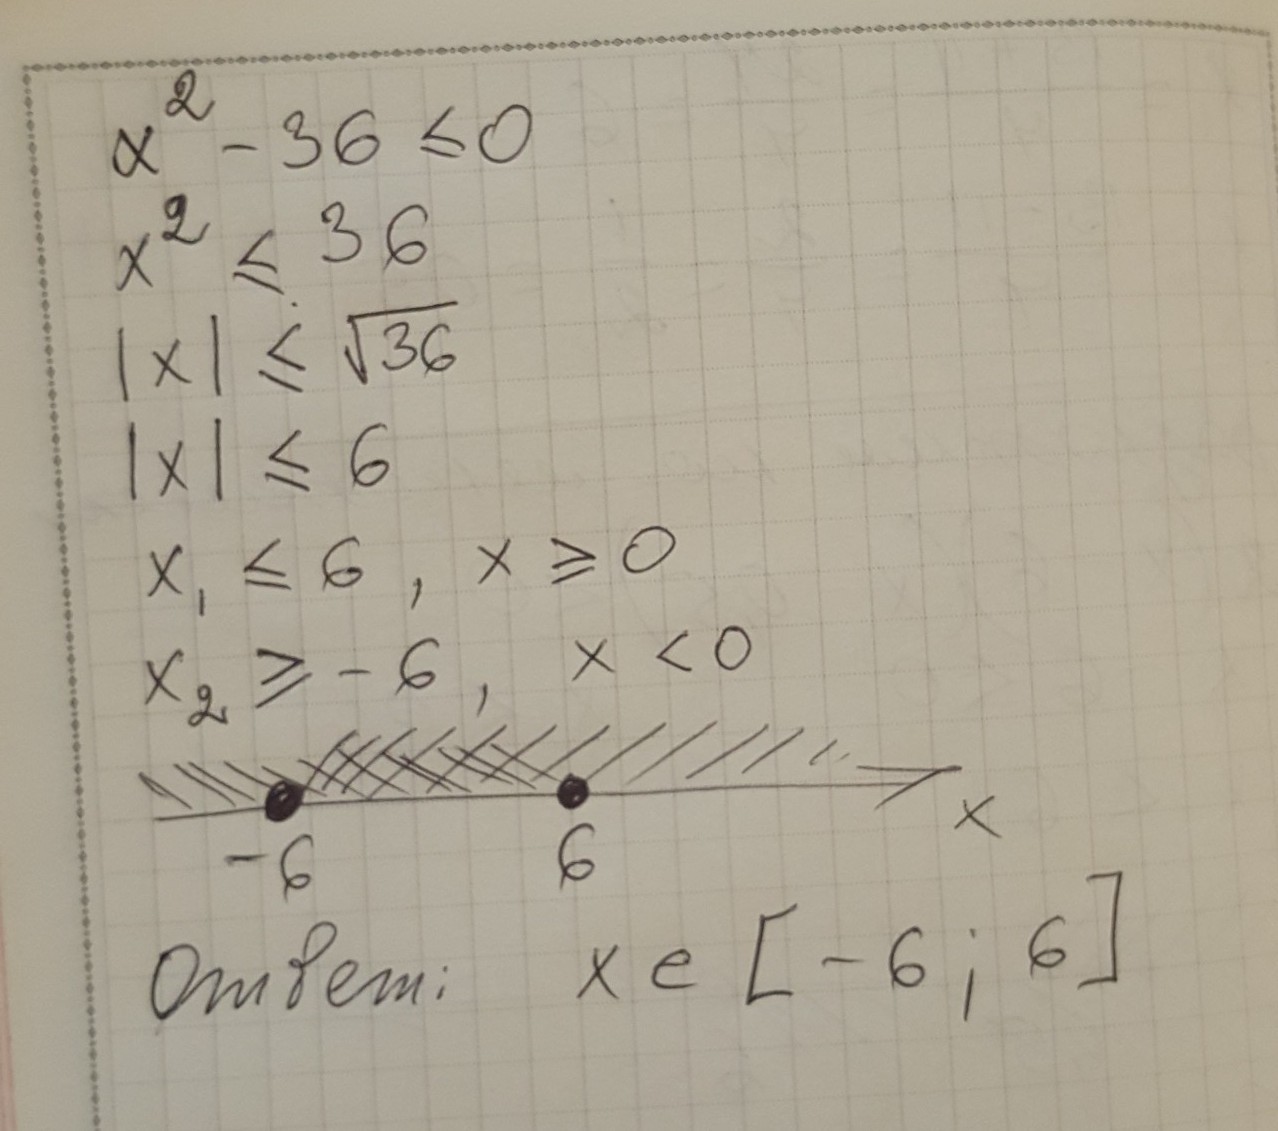 x² - 36 ≤ 0
x² ≤ 36
|x| ≤ √36
|x| ≤ 6
x₁ ≤ 6, x ≥ 0
x₂ ≥ -6, x < 0
-6 6 x
Ответ: x ∈ [-6; 6]